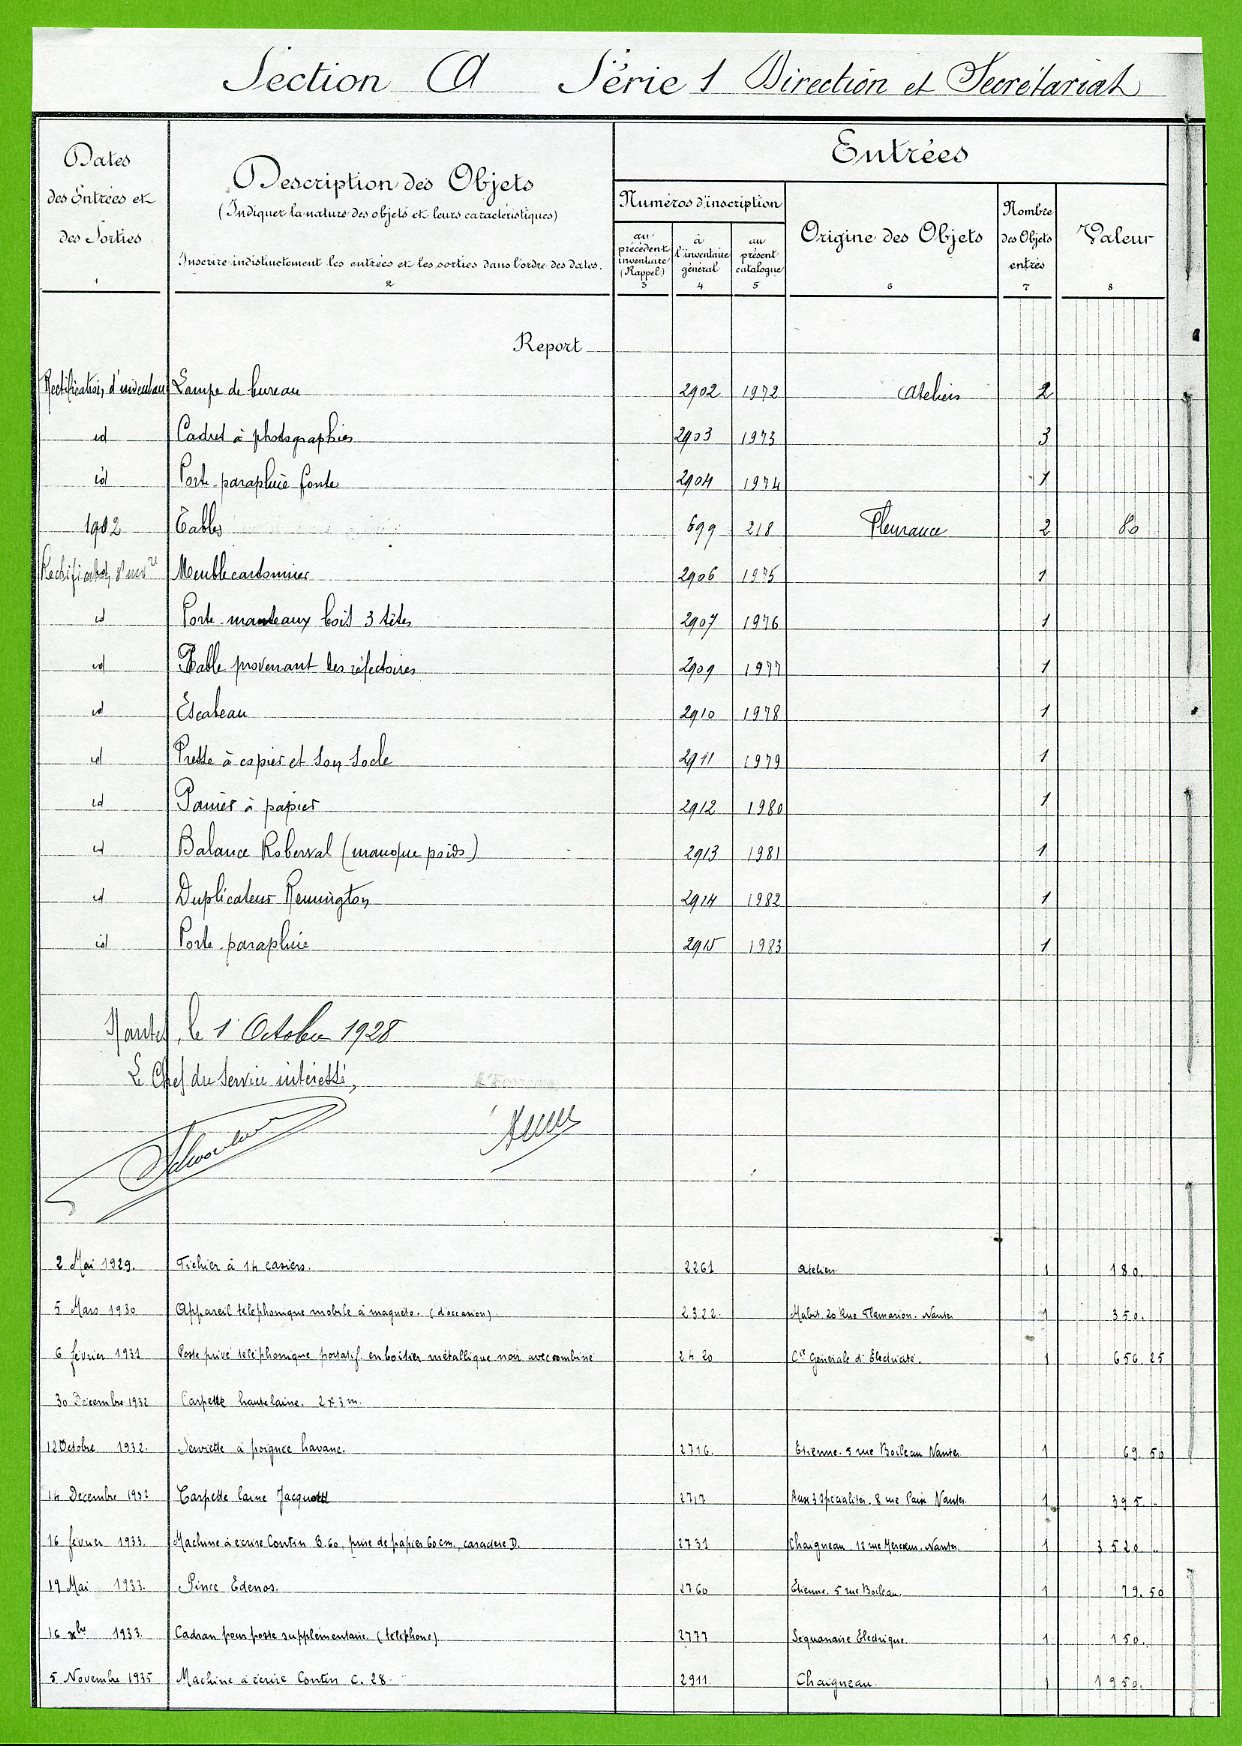 Section A Série 1 Direction et Secrétariat
Dates
des Entrées et
des Sorties
1
Description des Objets
(Indiquer la nature des objets et leurs caractéristiques)
Inscrire indistinctement les entrées et les sorties dans l'ordre des dates.
2
Entrées
Numéros d'inscription
au
précédent
inventaire
(Rappel)
3
à
l'inventaire
général
4
au
présent
catalogue
5
Origine des Objets
6
Nombre
des Objets
entrés
7
Valeur
8
Report
Rectification d'inventaire Lampe de bureau 2902 1972 Ateliers 2
id Cadres à photographies 2903 1973 3
id Porte-parapluie fonte 2904 1974 1
1902 Tables 699 218 Fleurance 2 80
Meuble cartonnier 2906 1975 1
id Porte-manteaux bois 3 têtes 2907 1976 1
id Table provenant des réfectoires 2909 1977 1
id Escabeau 2910 1978 1
id Presse à copier et son socle 2911 1979 1
id Panier à papier 2912 1980 1
id Balance Roberval (manque poids) 2913 1981 1
id Duplicateur Remington 2914 1982 1
id Porte-parapluie 2915 1983 1
Nantes, le 1 Octobre 1928
Le Chef du Service intéressé,
2 Mai 1929. Fichier à 14 casiers. 2261 Atelier 1 180.
5 Mars 1930 Appareil téléphonique mobile à magnéto. (d'occasion) 2322. Mabit. 20 Rue Flamarion. Nantes 1 350.
6 février 1931 Poste privé téléphonique portatif en boitier métallique noir avec combiné 2420 Cie Générale d'Electricité. 1 656 25
30 Décembre 1932 Carpette haute laine. 2 x 3 m.
12 Octobre 1932. Serviette à poignée havane. 2716. Etienne. 5 rue Boileau Nantes 1 69. 50
14 Decembre 1932 Carpette laine Jacquard 2717 Aux 3 Spécialités. 8 rue Paix Nantes 1 395.
16 février 1933. Machine à écrire Contin B.60, prise de papier 60 cm, caractère D. 2731 Chaigneau 12 rue Mercœur. Nantes 1 3520
19 Mai 1933. Pince Edenos. 2760 Etienne. 5 rue Boileau 1 79. 50
16 xbre 1933. Cadran pour poste supplémentaire (téléphone) 2777 Sequanaise Electrique. 1 150.
5 Novembre 1935 Machine à écrire Contin C. 28. 2911 Chaigneau 1 1950.